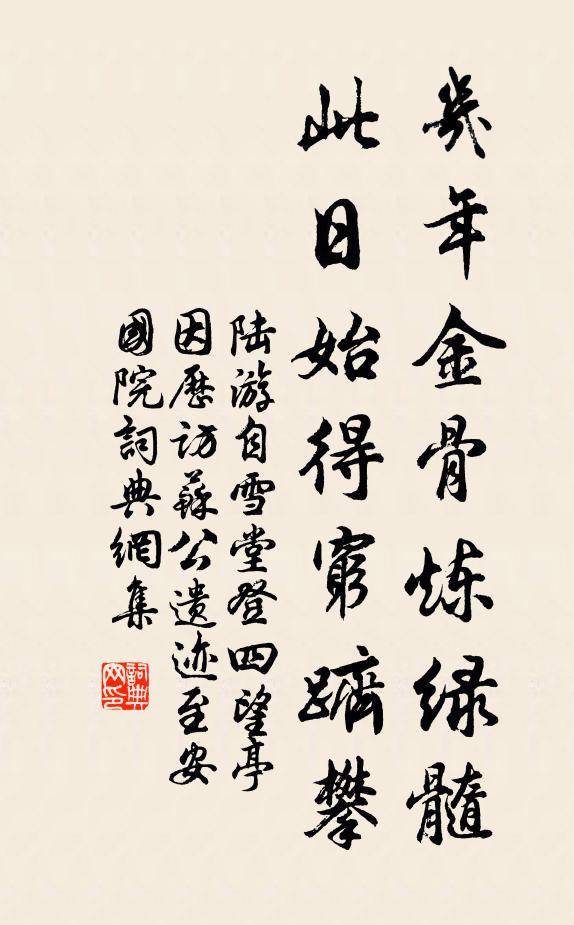 幾年金骨炼绿髓
此日始得窮躋攀
陆游自雪堂登四望亭
因歷访蘇公遗迹至安
國院詞典網集
詞典
网印